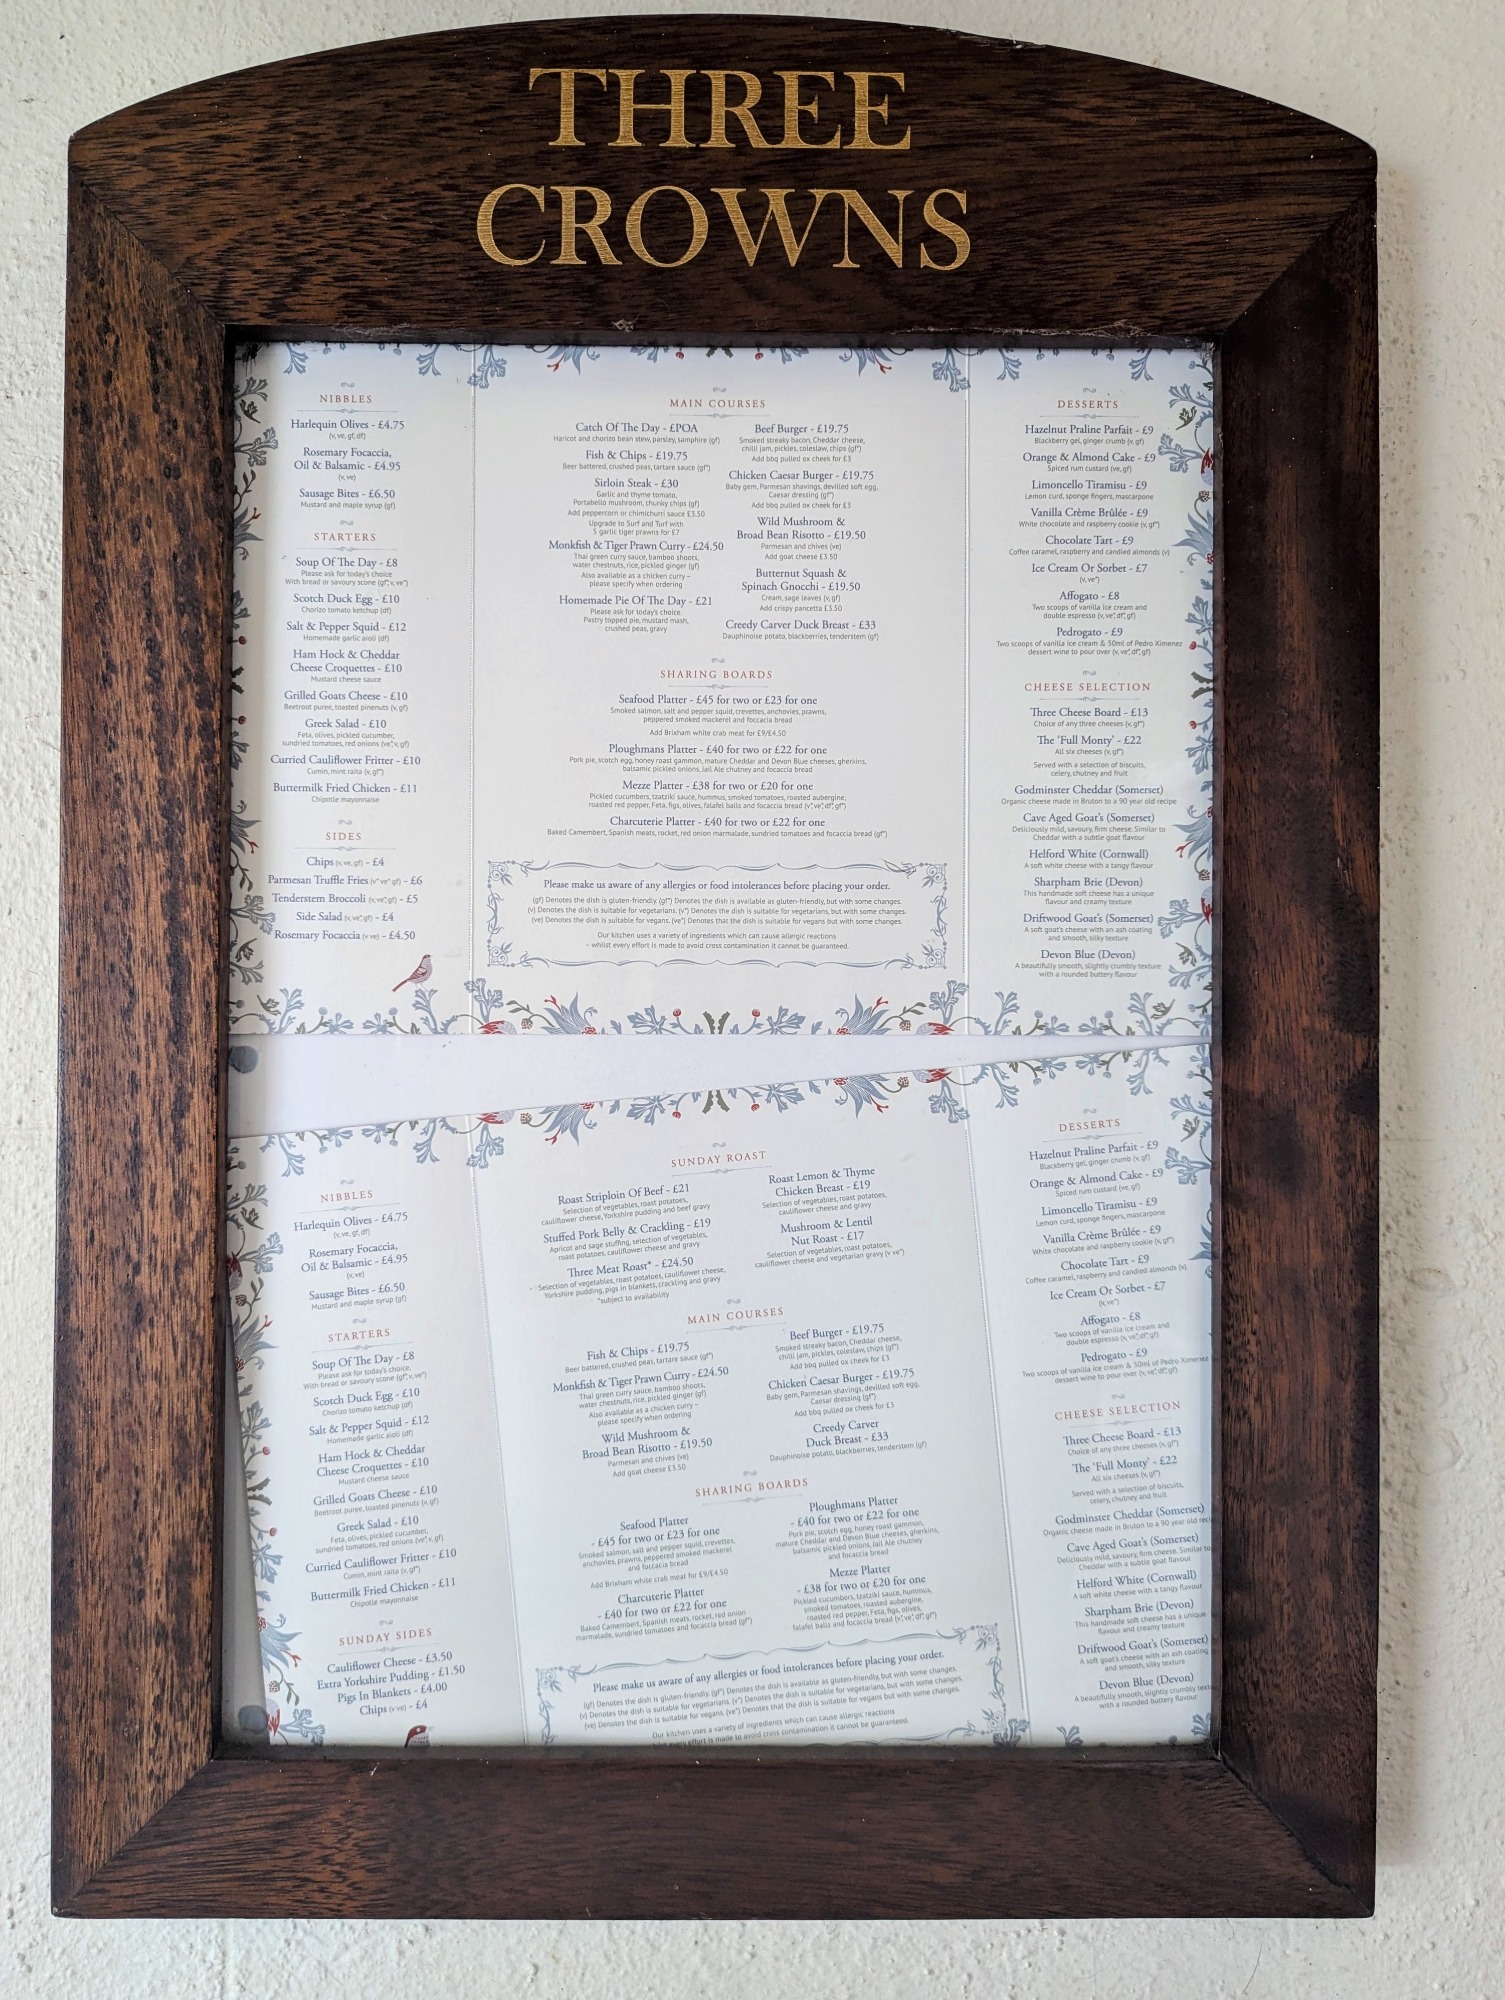 THREE
CROWNS
NIBBLES
Harlequin Olives - £4.75
(v, ve, gf, df)
Rosemary Focaccia,
Oil & Balsamic - £4.95
(v, ve)
Sausage Bites - £6.50
Mustard and maple syrup (gf)
STARTERS
Soup Of The Day - £8
Please ask for today's choice
With bread or savoury scone (gf*, v, ve*)
Scotch Duck Egg - £10
Chorizo tomato ketchup (df)
Salt & Pepper Squid - £12
Homemade garlic aioli (df)
Ham Hock & Cheddar
Cheese Croquettes - £10
Mustard cheese sauce
Grilled Goats Cheese - £10
Beetroot puree, toasted pinenuts (v, gf)
Greek Salad - £10
Feta, olives, pickled cucumber,
sundried tomatoes, red onions (ve*, v, gf)
Curried Cauliflower Fritter - £10
Cumin, mint raita (v, gf*)
Buttermilk Fried Chicken - £11
Chipotle mayonnaise
SIDES
Chips (v, ve, gf) - £4
Parmesan Truffle Fries (v* ve* gf) - £6
Tenderstem Broccoli (v, ve*, gf) - £5
Side Salad (v, ve*, gf) - £4
Rosemary Focaccia (v ve) - £4.50
MAIN COURSES
Catch Of The Day - £POA
Haricot and chorizo bean stew, parsley, samphire (gf)
Fish & Chips - £19.75
Beer battered, crushed peas, tartare sauce (gf*)
Sirloin Steak - £30
Garlic and thyme tomato,
Portabello mushroom, chunky chips (gf)
Add peppercorn or chimichurri sauce £3.50
Upgrade to Surf and Turf with
5 garlic tiger prawns for £7
Monkfish & Tiger Prawn Curry - £24.50
Thai green curry sauce, bamboo shoots,
water chestnuts, rice, pickled ginger (gf)
Also available as a chicken curry –
please specify when ordering
Homemade Pie Of The Day - £21
Please ask for today's choice.
Pastry topped pie, mustard mash,
crushed peas, gravy
Beef Burger - £19.75
Smoked streaky bacon, Cheddar cheese,
chilli jam, pickles, coleslaw, chips (gf*)
Add bbq pulled ox cheek for £3
Chicken Caesar Burger - £19.75
Baby gem, Parmesan shavings, devilled soft egg,
Caesar dressing (gf*)
Add bbq pulled ox cheek for £3
Wild Mushroom &
Broad Bean Risotto - £19.50
Parmesan and chives (ve)
Add goat cheese £3.50
Butternut Squash &
Spinach Gnocchi - £19.50
Cream, sage leaves (v, gf)
Add crispy pancetta £3.50
Creedy Carver Duck Breast - £33
Dauphinoise potato, blackberries, tenderstem (gf)
SHARING BOARDS
Seafood Platter - £45 for two or £23 for one
Smoked salmon, salt and pepper squid, crevettes, anchovies, prawns,
peppered smoked mackerel and foccacia bread
Add Brixham white crab meat for £9/£4.50
Ploughmans Platter - £40 for two or £22 for one
Pork pie, scotch egg, honey roast gammon, mature Cheddar and Devon Blue cheeses, gherkins,
balsamic pickled onions, Jail Ale chutney and focaccia bread
Mezze Platter - £38 for two or £20 for one
Pickled cucumbers, tzatziki sauce, hummus, smoked tomatoes, roasted aubergine,
roasted red pepper, Feta, figs, olives, falafel balls and focaccia bread (v*, ve*, df*, gf*)
Charcuterie Platter - £40 for two or £22 for one
Baked Camembert, Spanish meats, rocket, red onion marmalade, sundried tomatoes and focaccia bread (gf*)
Please make us aware of any allergies or food intolerances before placing your order.
(gf) Denotes the dish is gluten-friendly. (gf*) Denotes the dish is available as gluten-friendly, but with some changes.
(v) Denotes the dish is suitable for vegetarians. (v*) Denotes the dish is suitable for vegetarians, but with some changes.
(ve) Denotes the dish is suitable for vegans. (ve*) Denotes that the dish is suitable for vegans but with some changes.
Our kitchen uses a variety of ingredients which can cause allergic reactions
– whilst every effort is made to avoid cross contamination it cannot be guaranteed.
DESSERTS
Hazelnut Praline Parfait - £9
Blackberry gel, ginger crumb (v, gf)
Orange & Almond Cake - £9
Spiced rum custard (ve, gf)
Limoncello Tiramisu - £9
Lemon curd, sponge fingers, mascarpone
Vanilla Crème Brûlée - £9
White chocolate and raspberry cookie (v, gf*)
Chocolate Tart - £9
Coffee caramel, raspberry and candied almonds (v)
Ice Cream Or Sorbet - £7
(v, ve*)
Affogato - £8
Two scoops of vanilla ice cream and
double espresso (v, ve*, df*, gf)
Pedrogato - £9
Two scoops of vanilla ice cream & 50ml of Pedro Ximenez
dessert wine to pour over (v, ve*, df*, gf)
CHEESE SELECTION
Three Cheese Board - £13
Choice of any three cheeses (v, gf*)
The 'Full Monty' - £22
All six cheeses (v, gf*)
Served with a selection of biscuits,
celery, chutney and fruit
Godminster Cheddar (Somerset)
Organic cheese made in Bruton to a 90 year old recipe
Cave Aged Goat's (Somerset)
Deliciously mild, savoury, firm cheese. Similar to
Cheddar with a subtle goat flavour
Helford White (Cornwall)
A soft white cheese with a tangy flavour
Sharpham Brie (Devon)
This handmade soft cheese has a unique
flavour and creamy texture
Driftwood Goat's (Somerset)
A soft goat's cheese with an ash coating
and smooth, silky texture
Devon Blue (Devon)
A beautifully smooth, slightly crumbly texture
with a rounded buttery flavour
NIBBLES
Harlequin Olives - £4.75
(v, ve, gf, df)
Rosemary Focaccia,
Oil & Balsamic - £4.95
(v, ve)
Sausage Bites - £6.50
Mustard and maple syrup (gf)
STARTERS
Soup Of The Day - £8
Please ask for today's choice.
With bread or savoury scone (gf*, v, ve*)
Scotch Duck Egg - £10
Chorizo tomato ketchup (df)
Salt & Pepper Squid - £12
Homemade garlic aioli (df)
Ham Hock & Cheddar
Cheese Croquettes - £10
Mustard cheese sauce
Grilled Goats Cheese - £10
Beetroot puree, toasted pinenuts (v, gf)
Greek Salad - £10
Feta, olives, pickled cucumber,
sundried tomatoes, red onions (ve*, v, gf)
Curried Cauliflower Fritter - £10
Cumin, mint raita (v, gf*)
Buttermilk Fried Chicken - £11
Chipotle mayonnaise
SUNDAY SIDES
Cauliflower Cheese - £3.50
Extra Yorkshire Pudding - £1.50
Pigs In Blankets - £4.00
Chips (v ve) - £4
SUNDAY ROAST
Roast Striploin Of Beef - £21
Selection of vegetables, roast potatoes,
cauliflower cheese, Yorkshire pudding and beef gravy
Stuffed Pork Belly & Crackling - £19
Apricot and sage stuffing, selection of vegetables,
roast potatoes, cauliflower cheese and gravy
Three Meat Roast* - £24.50
Selection of vegetables, roast potatoes, cauliflower cheese,
Yorkshire pudding, pigs in blankets, crackling and gravy
*subject to availability
Roast Lemon & Thyme
Chicken Breast - £19
Selection of vegetables, roast potatoes,
cauliflower cheese and gravy
Mushroom & Lentil
Nut Roast - £17
Selection of vegetables, roast potatoes,
cauliflower cheese and vegetarian gravy (v ve*)
MAIN COURSES
Fish & Chips - £19.75
Beer battered, crushed peas, tartare sauce (gf*)
Monkfish & Tiger Prawn Curry - £24.50
Thai green curry sauce, bamboo shoots,
water chestnuts, rice, pickled ginger (gf)
Also available as a chicken curry –
please specify when ordering
Wild Mushroom &
Broad Bean Risotto - £19.50
Parmesan and chives (ve)
Add goat cheese £3.50
Beef Burger - £19.75
Smoked streaky bacon, Cheddar cheese,
chilli jam, pickles, coleslaw, chips (gf*)
Add bbq pulled ox cheek for £3
Chicken Caesar Burger - £19.75
Baby gem, Parmesan shavings, devilled soft egg,
Caesar dressing (gf*)
Add bbq pulled ox cheek for £3
Creedy Carver
Duck Breast - £33
Dauphinoise potato, blackberries, tenderstem (gf)
SHARING BOARDS
Seafood Platter
- £45 for two or £23 for one
Smoked salmon, salt and pepper squid, crevettes,
anchovies, prawns, peppered smoked mackerel
and foccacia bread
Add Brixham white crab meat for £9/£4.50
Charcuterie Platter
- £40 for two or £22 for one
Baked Camembert, Spanish meats, rocket, red onion
marmalade, sundried tomatoes and focaccia bread (gf*)
Ploughmans Platter
- £40 for two or £22 for one
Pork pie, scotch egg, honey roast gammon,
mature Cheddar and Devon Blue cheeses, gherkins,
balsamic pickled onions, Jail Ale chutney
and focaccia bread
Mezze Platter
- £38 for two or £20 for one
Pickled cucumbers, tzatziki sauce, hummus,
smoked tomatoes, roasted aubergine,
roasted red pepper, Feta, figs, olives,
falafel balls and focaccia bread (v*, ve*, df*, gf*)
Please make us aware of any allergies or food intolerances before placing your order.
(gf) Denotes the dish is gluten-friendly. (gf*) Denotes the dish is available as gluten-friendly, but with some changes.
(v) Denotes the dish is suitable for vegetarians. (v*) Denotes the dish is suitable for vegetarians, but with some changes.
(ve) Denotes the dish is suitable for vegans. (ve*) Denotes that the dish is suitable for vegans but with some changes.
Our kitchen uses a variety of ingredients which can cause allergic reactions
every effort is made to avoid cross contamination it cannot be guaranteed.
DESSERTS
Hazelnut Praline Parfait - £9
Blackberry gel, ginger crumb (v, gf)
Orange & Almond Cake - £9
Spiced rum custard (ve, gf)
Limoncello Tiramisu - £9
Lemon curd, sponge fingers, mascarpone
Vanilla Crème Brûlée - £9
White chocolate and raspberry cookie (v, gf*)
Chocolate Tart - £9
Coffee caramel, raspberry and candied almonds (v)
Ice Cream Or Sorbet - £7
(v, ve*)
Affogato - £8
Two scoops of vanilla ice cream and
double espresso (v, ve*, df*, gf)
Pedrogato - £9
Two scoops of vanilla ice cream & 50ml of Pedro Ximenez
dessert wine to pour over (v, ve*, df*, gf)
CHEESE SELECTION
Three Cheese Board - £13
Choice of any three cheeses (v, gf*)
The 'Full Monty' - £22
All six cheeses (v, gf*)
Served with a selection of biscuits,
celery, chutney and fruit
Godminster Cheddar (Somerset)
Organic cheese made in Bruton to a 90 year old
Cave Aged Goat's (Somerset)
Deliciously mild, savoury, firm cheese. Similar to
Cheddar with a subtle goat flavour
Helford White (Cornwall)
A soft white cheese with a tangy flavour
Sharpham Brie (Devon)
This handmade soft cheese has a unique
flavour and creamy texture
Driftwood Goat's (Somerset)
A soft goat's cheese with an ash coating
and smooth, silky texture
Devon Blue (Devon)
A beautifully smooth, slightly crumbly
with a rounded buttery flavour